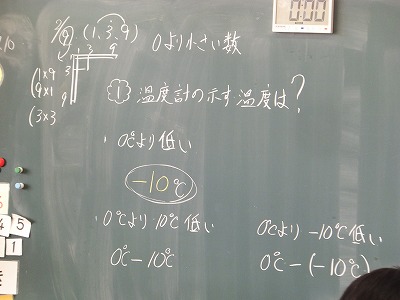 (1, 3, 9)
0より小さい数
1 3 9
3
9
(1×9
9×1
(3×3
① 温度計の示す温度は?
・0℃より低い
-10℃
・0℃より10℃低い
0℃-10℃
0℃より-10℃低い
0℃-(-10℃)
00:00
4 5
1